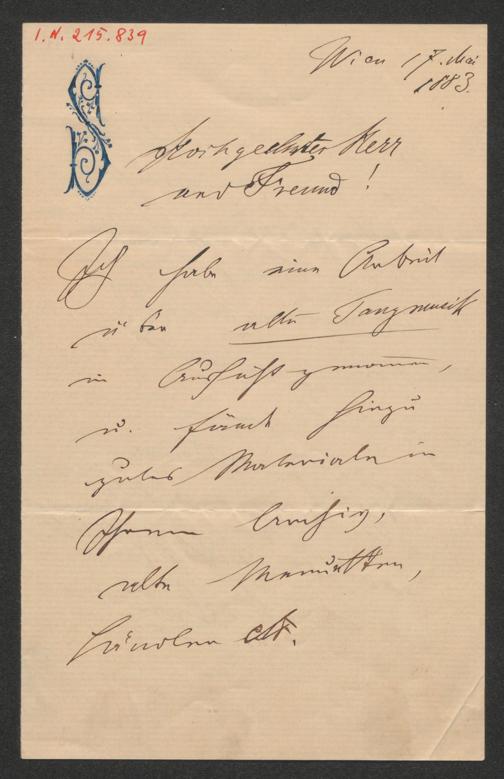 I.N. 215.839
Wien 17. Mai
1883.
Hochgeehrter Herr
und Freund!
Ich habe eine Arbeit
über alte Tanzmusik
in Aussicht genommen,
u. fände hiezu
gutes Materiale in
Ihrem Archiv,
alte Menuetten,
Ländler etc.